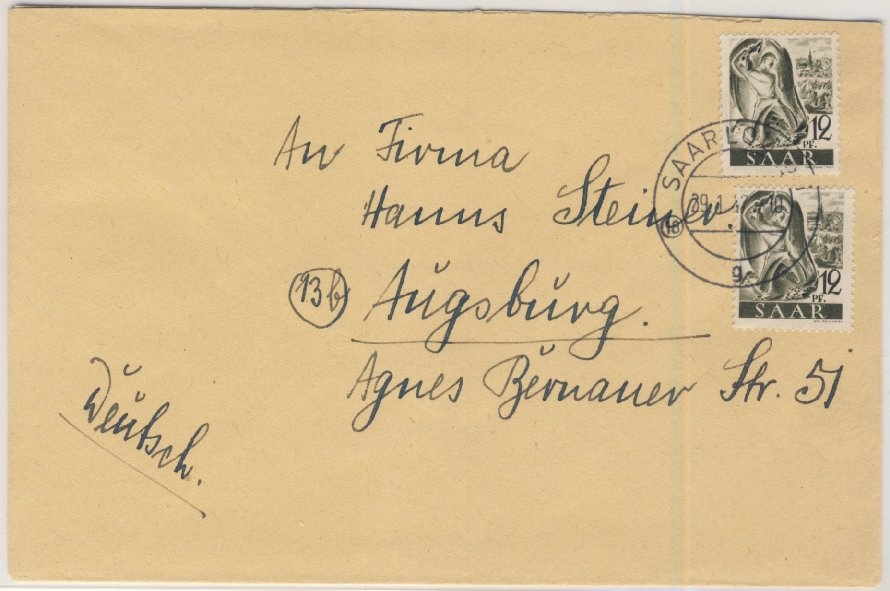 12
PF.
SAAR
SAARLO
(18)
g
12
PF.
SAAR
An Firma
Hanns Steiner
(13b) Augsburg.
Agnes Bernauer Str. 51
Deutsch.